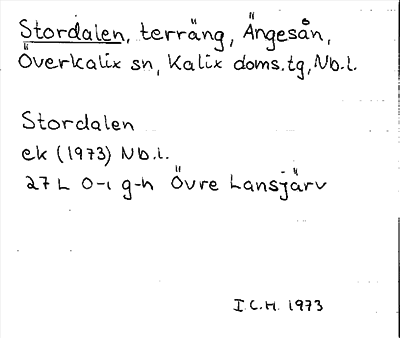 Stordalen, terräng, Ängesån,
Överkalix sn, Kalix doms.tg, Nb.l.
Stordalen
ek (1973) Nb.l.
27 L 0-1 g-h Övre Lansjärv
I.C.H. 1973